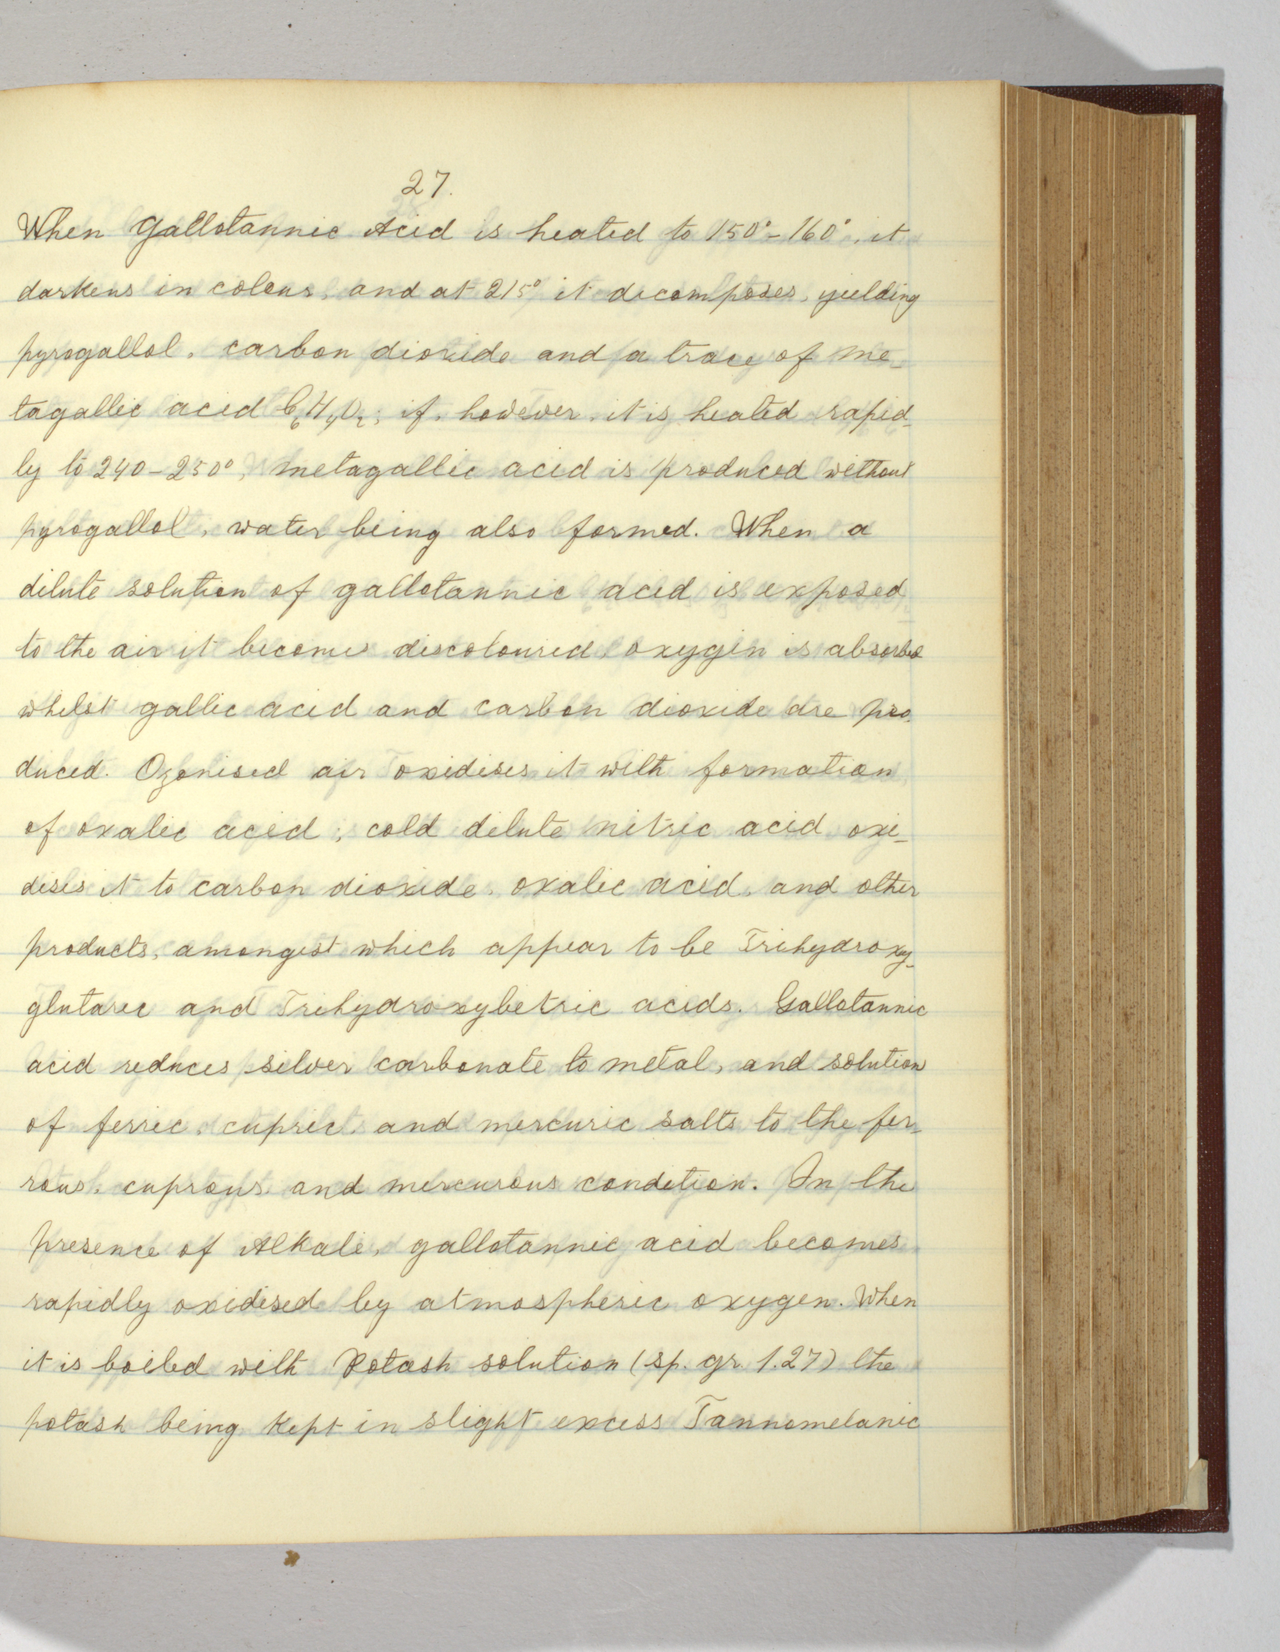 27.
When Gallotannic Acid is heated to 150°-160°, it
darkens in colour, and at 215° it decomposes, yielding
pyrogallol, carbon dioxide and a trace of me-
tagallic acid C6H4O2; if, however, it is heated rapid-
ly to 240-250°, metagallic acid is produced without
pyrogallol, water being also formed. When a
dilute solution of gallotannic acid is exposed
to the air it become discoloured oxygen is absorbed
whilst gallic acid and carbon dioxide are pro-
duced. Ozonised air oxidises it with formation
of oxalic acid; cold dilute nitric acid oxi-
dises it to carbon dioxide, oxalic acid, and other
products, amongst which appear to be Trihydroxy-
glutaric and Trihydroxybetric acids. Gallotannic
acid reduces silver carbonate to metal, and solution
of ferric, cupric, and mercuric salts to the fer-
rous, cuprous, and mercurous condition. In the
presence of Alkali, gallotannic acid becomes
rapidly oxidised by atmospheric oxygen. When
it is boiled with Potash solution (sp. gr. 1.27) the
potash being kept in slight excess Tannomelanic